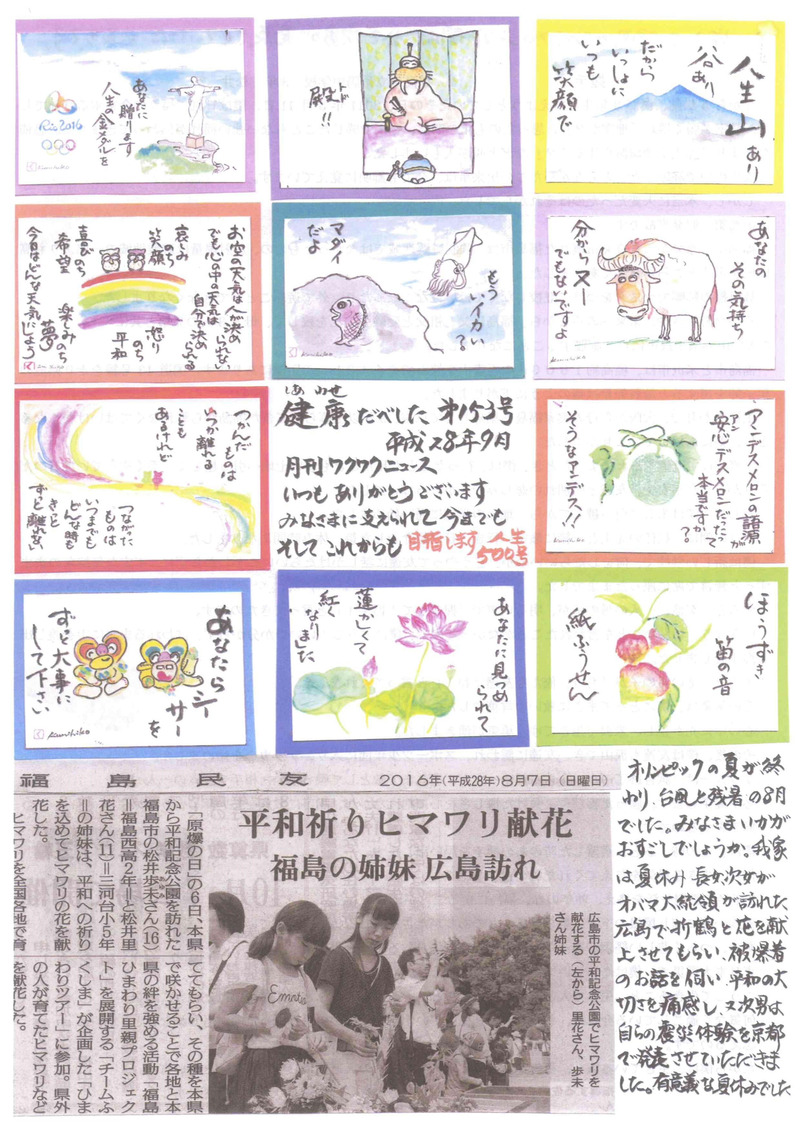 あなたに
贈ります
人生の
金メダルを
Rio2016
Kunihiko
殿!!
トド
人生山あり
谷あり
だから
いっしょに
いつも
笑顔で
お空の天気は人が決め
られない
でも心の中の天気は
自分で決められる
哀しみ
のち
笑顔
怒り
のち
平和
喜びのち
希望
楽しみのち
夢
今日はどんな天気にしよう
もう
いイカい
?
マダイ
だよ
あなたの
その気持ち
分からヌー
でもないですよ
Kunihiko
つかんだ
ものは
いつか離れる
ことも
あるけれど
つながった
ものは
いつまでも
どんな時も
きっと
ずっと離れない
しあわせ
健康だべした 第153号
平成28年9月
月刊ワクワクニュース
いつもありがとうございます
みなさまに支えられて今までも
そしてこれからも目指します人生
500号
アンデスメロンの語源が
安心デスメロンだったって
アン
本当ですか
??
そうなアンデス!!
Kunihiko
あなたらシー
サーを
ずっと大事に
して下さい
Kunihiko
あなたに見つめ
られて
蓮かしくて
紅く
なりました
ほうずき
笛の音
紙ふうせん
福島民友
2016年(平成28年)8月7日(日曜日)
平和祈りヒマワリ献花
福島の姉妹 広島訪れ
「原爆の日」の6日、本県
から平和記念公園を訪れた
福島市の松井歩未さん(16)
=福島西高2年=と松井里
花さん(11)=三河台小5年
=の姉妹は、平和への祈り
を込めてヒマワリの花を献
花した。
ヒマワリを全国各地で育
ててもらい、その種を本県
で咲かせることで各地と本
県の絆を強める活動「福島
ひまわり里親プロジェク
ト」を展開する「チームふ
くしま」が企画した「ひま
わりツアー」に参加。県外
の人が育てたヒマワリなど
を献花した。
広島市の平和記念公園でヒマワリを
献花する(左から)里花さん、歩未
さん姉妹
オリンピックの夏が終
わり、台風と残暑の8月
でした。みなさまいかが
おすごしでしょうか。我家
は夏休み長女次女が
オバマ大統領が訪れた
広島で折鶴と花を献
上させてもらい、被爆者
のお話を伺い平和の大
切さを痛感し、又次男は
自らの震災体験を京都
で発表させていただきま
した。有意義な夏休みでした